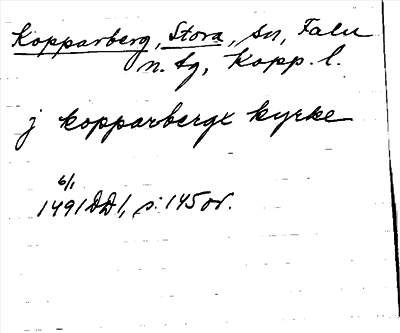 Kopparberg, Stora, sn, Falu
n. tg, Kopp. l.
j kopparbergx kyrke
6/1
1491 DD1, s: 145 or.